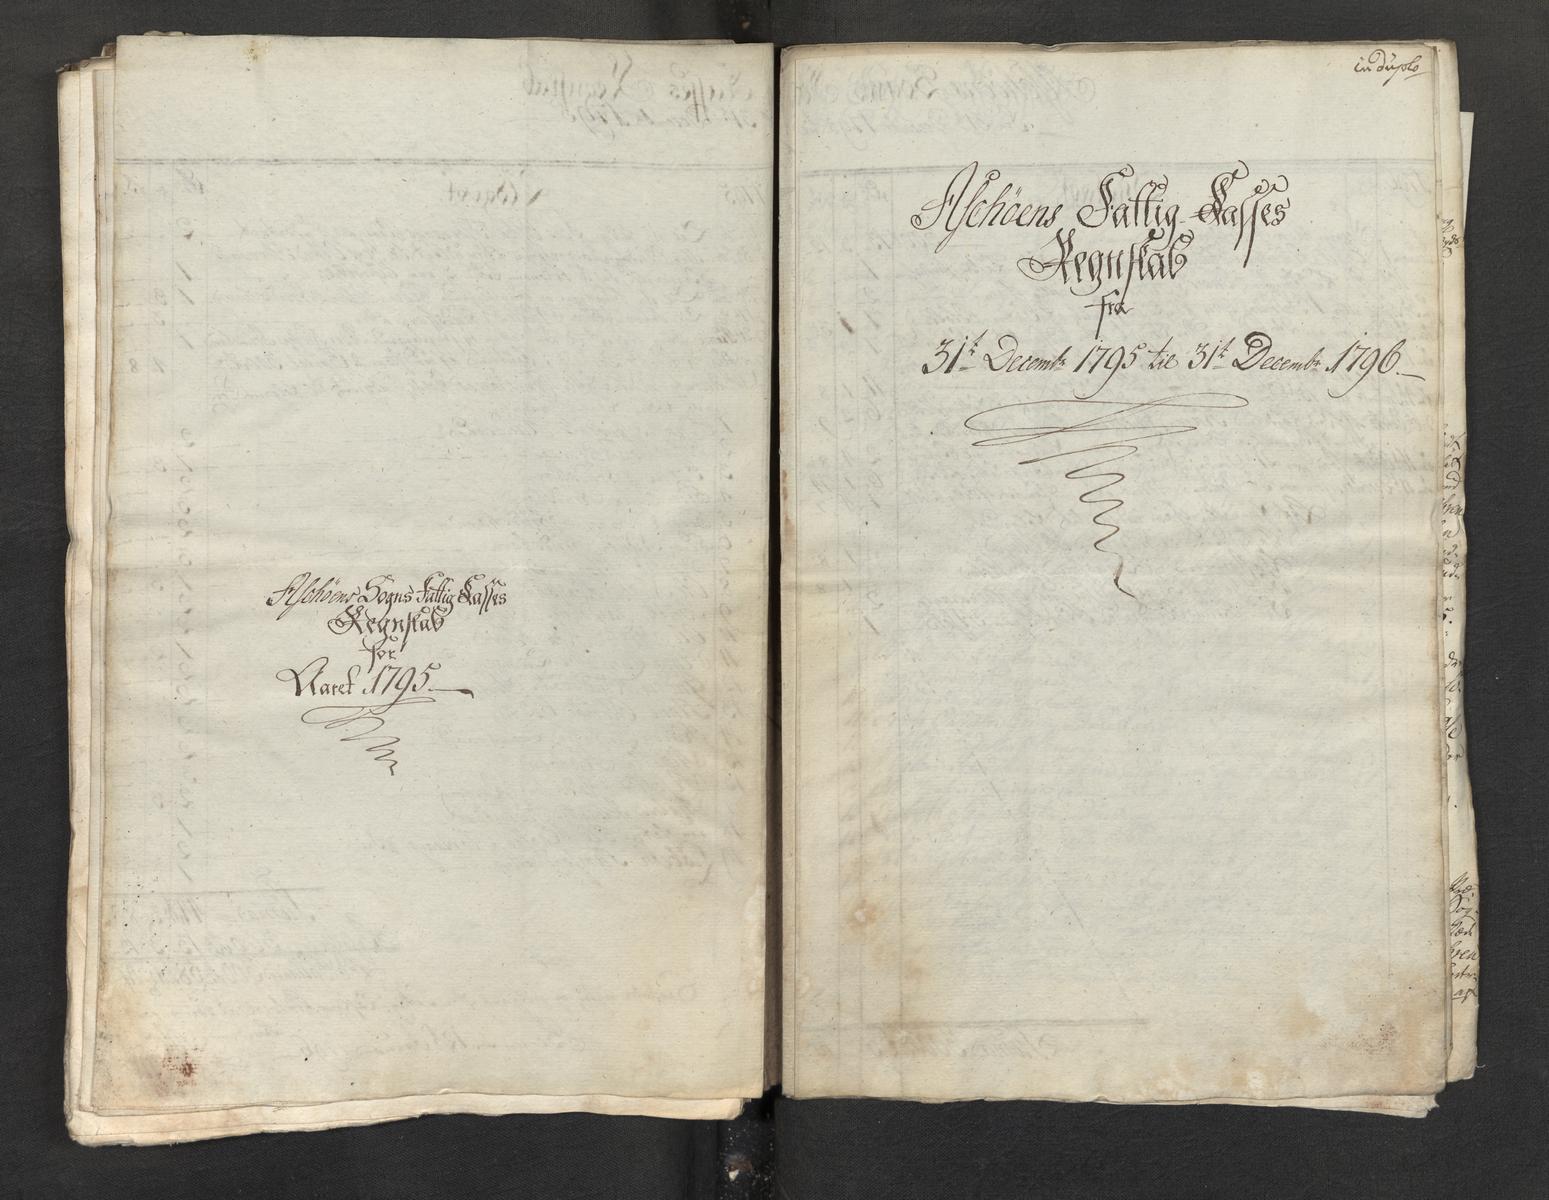 Aschöens Sogns Fattig Casses
Regnskab
for
Aaret 1795.
in duplo
Aschöens Fattig-Casses
Regnskab
fra
31t Decembr 1795 til 31t Decembr 1796.